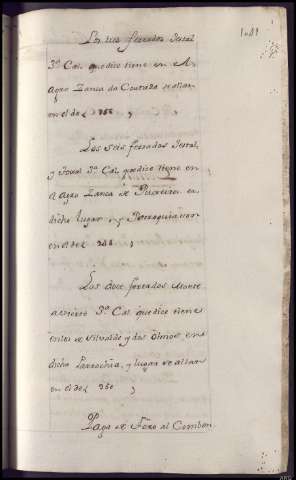 1681
Los tres ferrados Jestal
3ª Cal. que dice tiene en el
agro Zanca da Coutada se allan
en el de L 256 ,,
Los seis ferrados Jestal
y Toxal 3ª Cal. que dice tiene en
el agro Zanca de Pureiro, en
dicho lugar y Parroquia van
en el de L 258 ,
Los doce ferrados Monte
avierto 3ª Cal que dice tiene
entre de Silvalde y dos Olmos en
dicha Parrochia, y lugar se allan
en el de L 260 ,
Paga de Foro al Comben